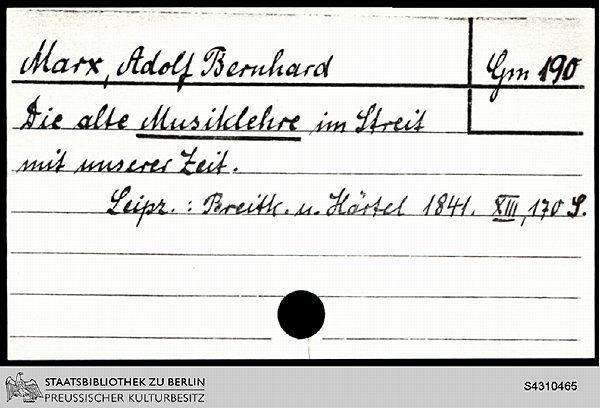 Marx, Adolf Bernhard
Gm 190
Die alte Musiklehre im Streit
mit unserer Zeit.
Leipz. : Breitk. u. Härtel 1841. XIII, 170 S.
STAATSBIBLIOTHEK ZU BERLIN
PREUSSISCHER KULTURBESITZ
S4310465